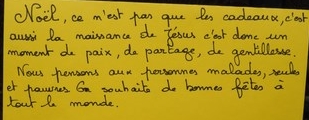 Noël, ce n'est pas que les cadeaux, c'est
aussi la naissance de Jésus c'est donc un
moment de paix, de partage, de gentillesse.
Nous pensons aux personnes malades, seules
et pauvres On souhaite de bonnes fêtes à
tout le monde.